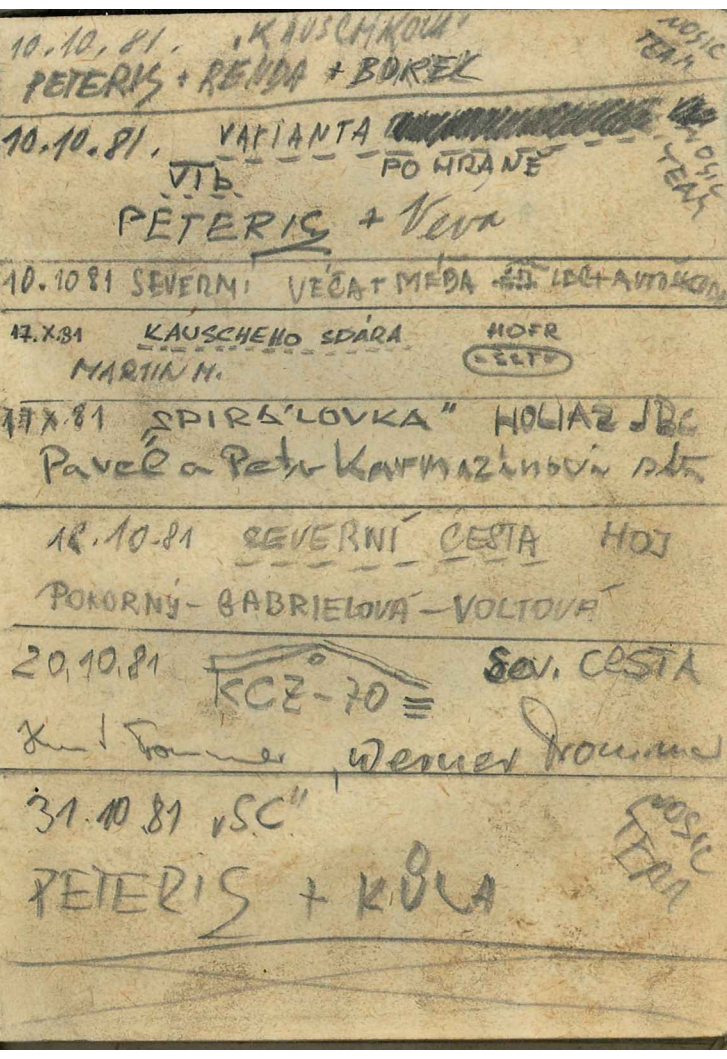 10.10.81. „KAUSCHKOVA" NOSIC TEAM
PETERIS + RENDA + BOREK
10.10.81. VARIANTA NOSIC TEAM
VIb PO HRANĚ
PETERIS + Věra
10.10 81 SEVERNÍ VÉČA + MÉĎA
17.X.81 KAUSCHEHO SPÁRA HOFR
MARTIN M.
17 X 81 „SPIRÁLOVKA" JBC
Pavel a Petr Karmazínovi
18.10.81 SEVERNÍ CESTA HOJ
POKORNÝ - GABRIELOVÁ - VOLTOVÁ
20.10.81 KCZ-70 Sev. CESTA
Werner
31.10.81 „SC"
NOSIC TEAM
PETERIS + KŮLA